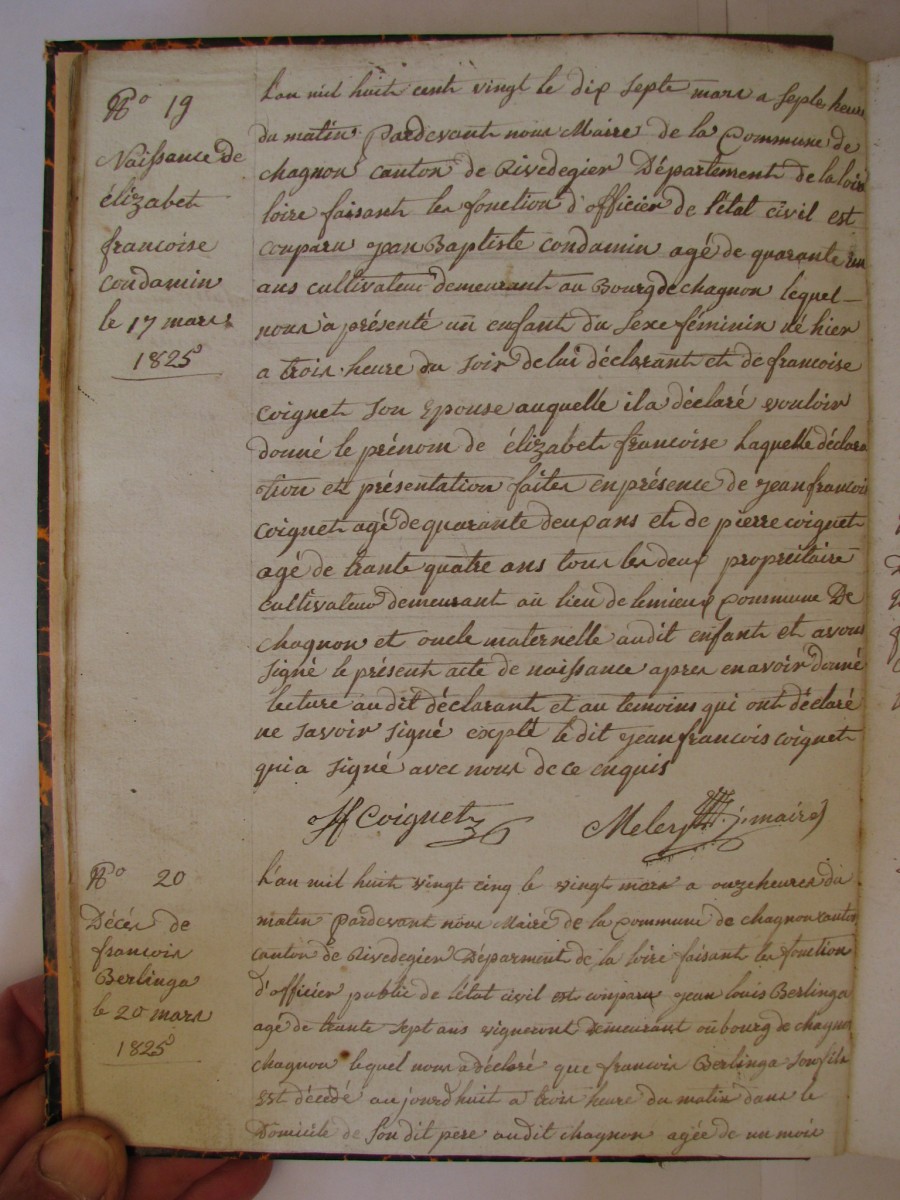 No 19
Naissance de
élizabet
francoise
condamin
le 17 mars
1825
L'an mil huit cent vingt le dix sept mars a sept heure
du matin pardevant nous Maire de la Commune de
chagnon canton de Rivedegier Département de la loir
loire faisant les fonction d'officier de l'état civil est
comparu jean Baptiste condamin agé de quarante un
ans cultivateur demeurant au Bourg de chagnon lequel
nous a présenté un enfant du sexe féminin né hier
a trois heure du soir de lui déclarant et de francoise
coignet son Epouse auquelle il a déclaré vouloir
donné le prénom de élizabet francoise Laquelle déclara
tion et présentation faites en présence de jean francois
coignet agé de quarante deux ans et de pierre coignet
agé de trante quatre ans tous les deux propreitaire
cultivateur demeurant au lieu de lemieux commune De
chagnon et oncle maternelle audit enfant et avons
signé le présent acte de naissance apres en avoir donné
lecture audit déclarant et au temoins qui ont déclaré
ne savoir signé expté le dit jean francois coignet
qui a signé avec nous de ce enquis
jf Coignet j. maire
No 20
Décés de
francois
Berlinga
le 20 mars
1825
L'an mil huit vingt cinq le vingt mars a onze heures du
matin pardevant nous Maire de la Commune de chagnon canton
canton de Rivedegier Déparment de la loire faisant les fonction
d'officier public de l'état civil est comparu jean louis Berlinga
agé de trante sept ans vigneront demeurant au bourg de chagnon
chagnon lequel nous a déclaré que francois Berlinga son fils
est décédé aujourdhuit a trois heure du matin dans le
Domicile de son dit pere audit chagnon agée de un mois